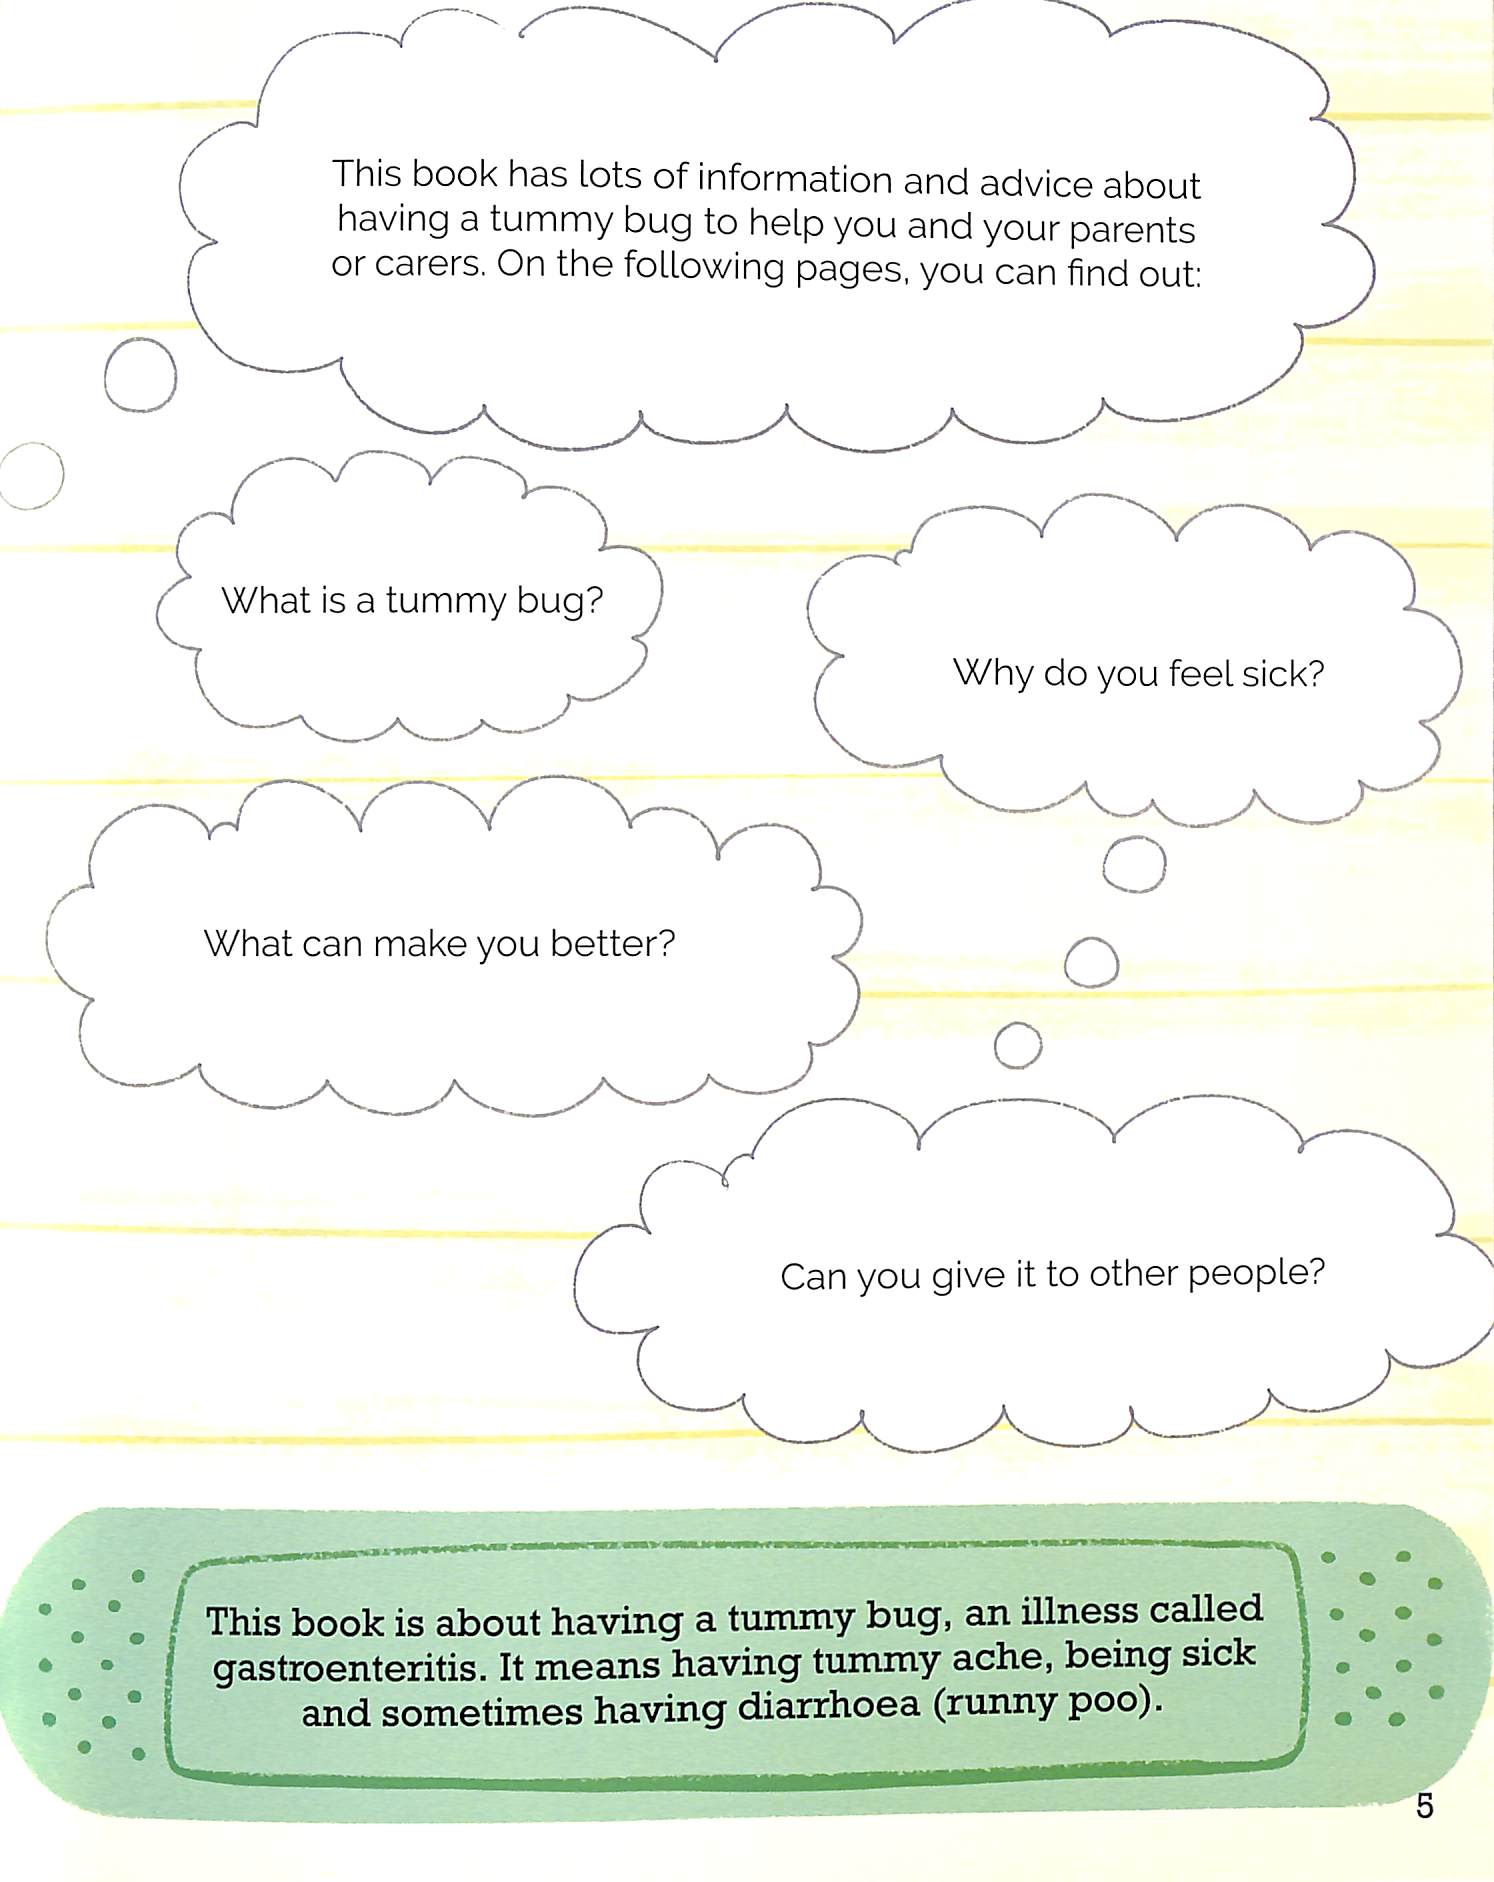 This book has lots of information and advice about
having a tummy bug to help you and your parents
or carers. On the following pages, you can find out:
What is a tummy bug?
Why do you feel sick?
What can make you better?
Can you give it to other people?
This book is about having a tummy bug, an illness called
gastroenteritis. It means having tummy ache, being sick
and sometimes having diarrhoea (runny poo).
5